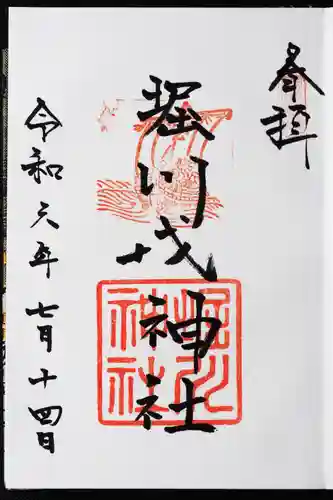 奉拝
堀川戎神社
令和六年七月十四日
堀川
神社